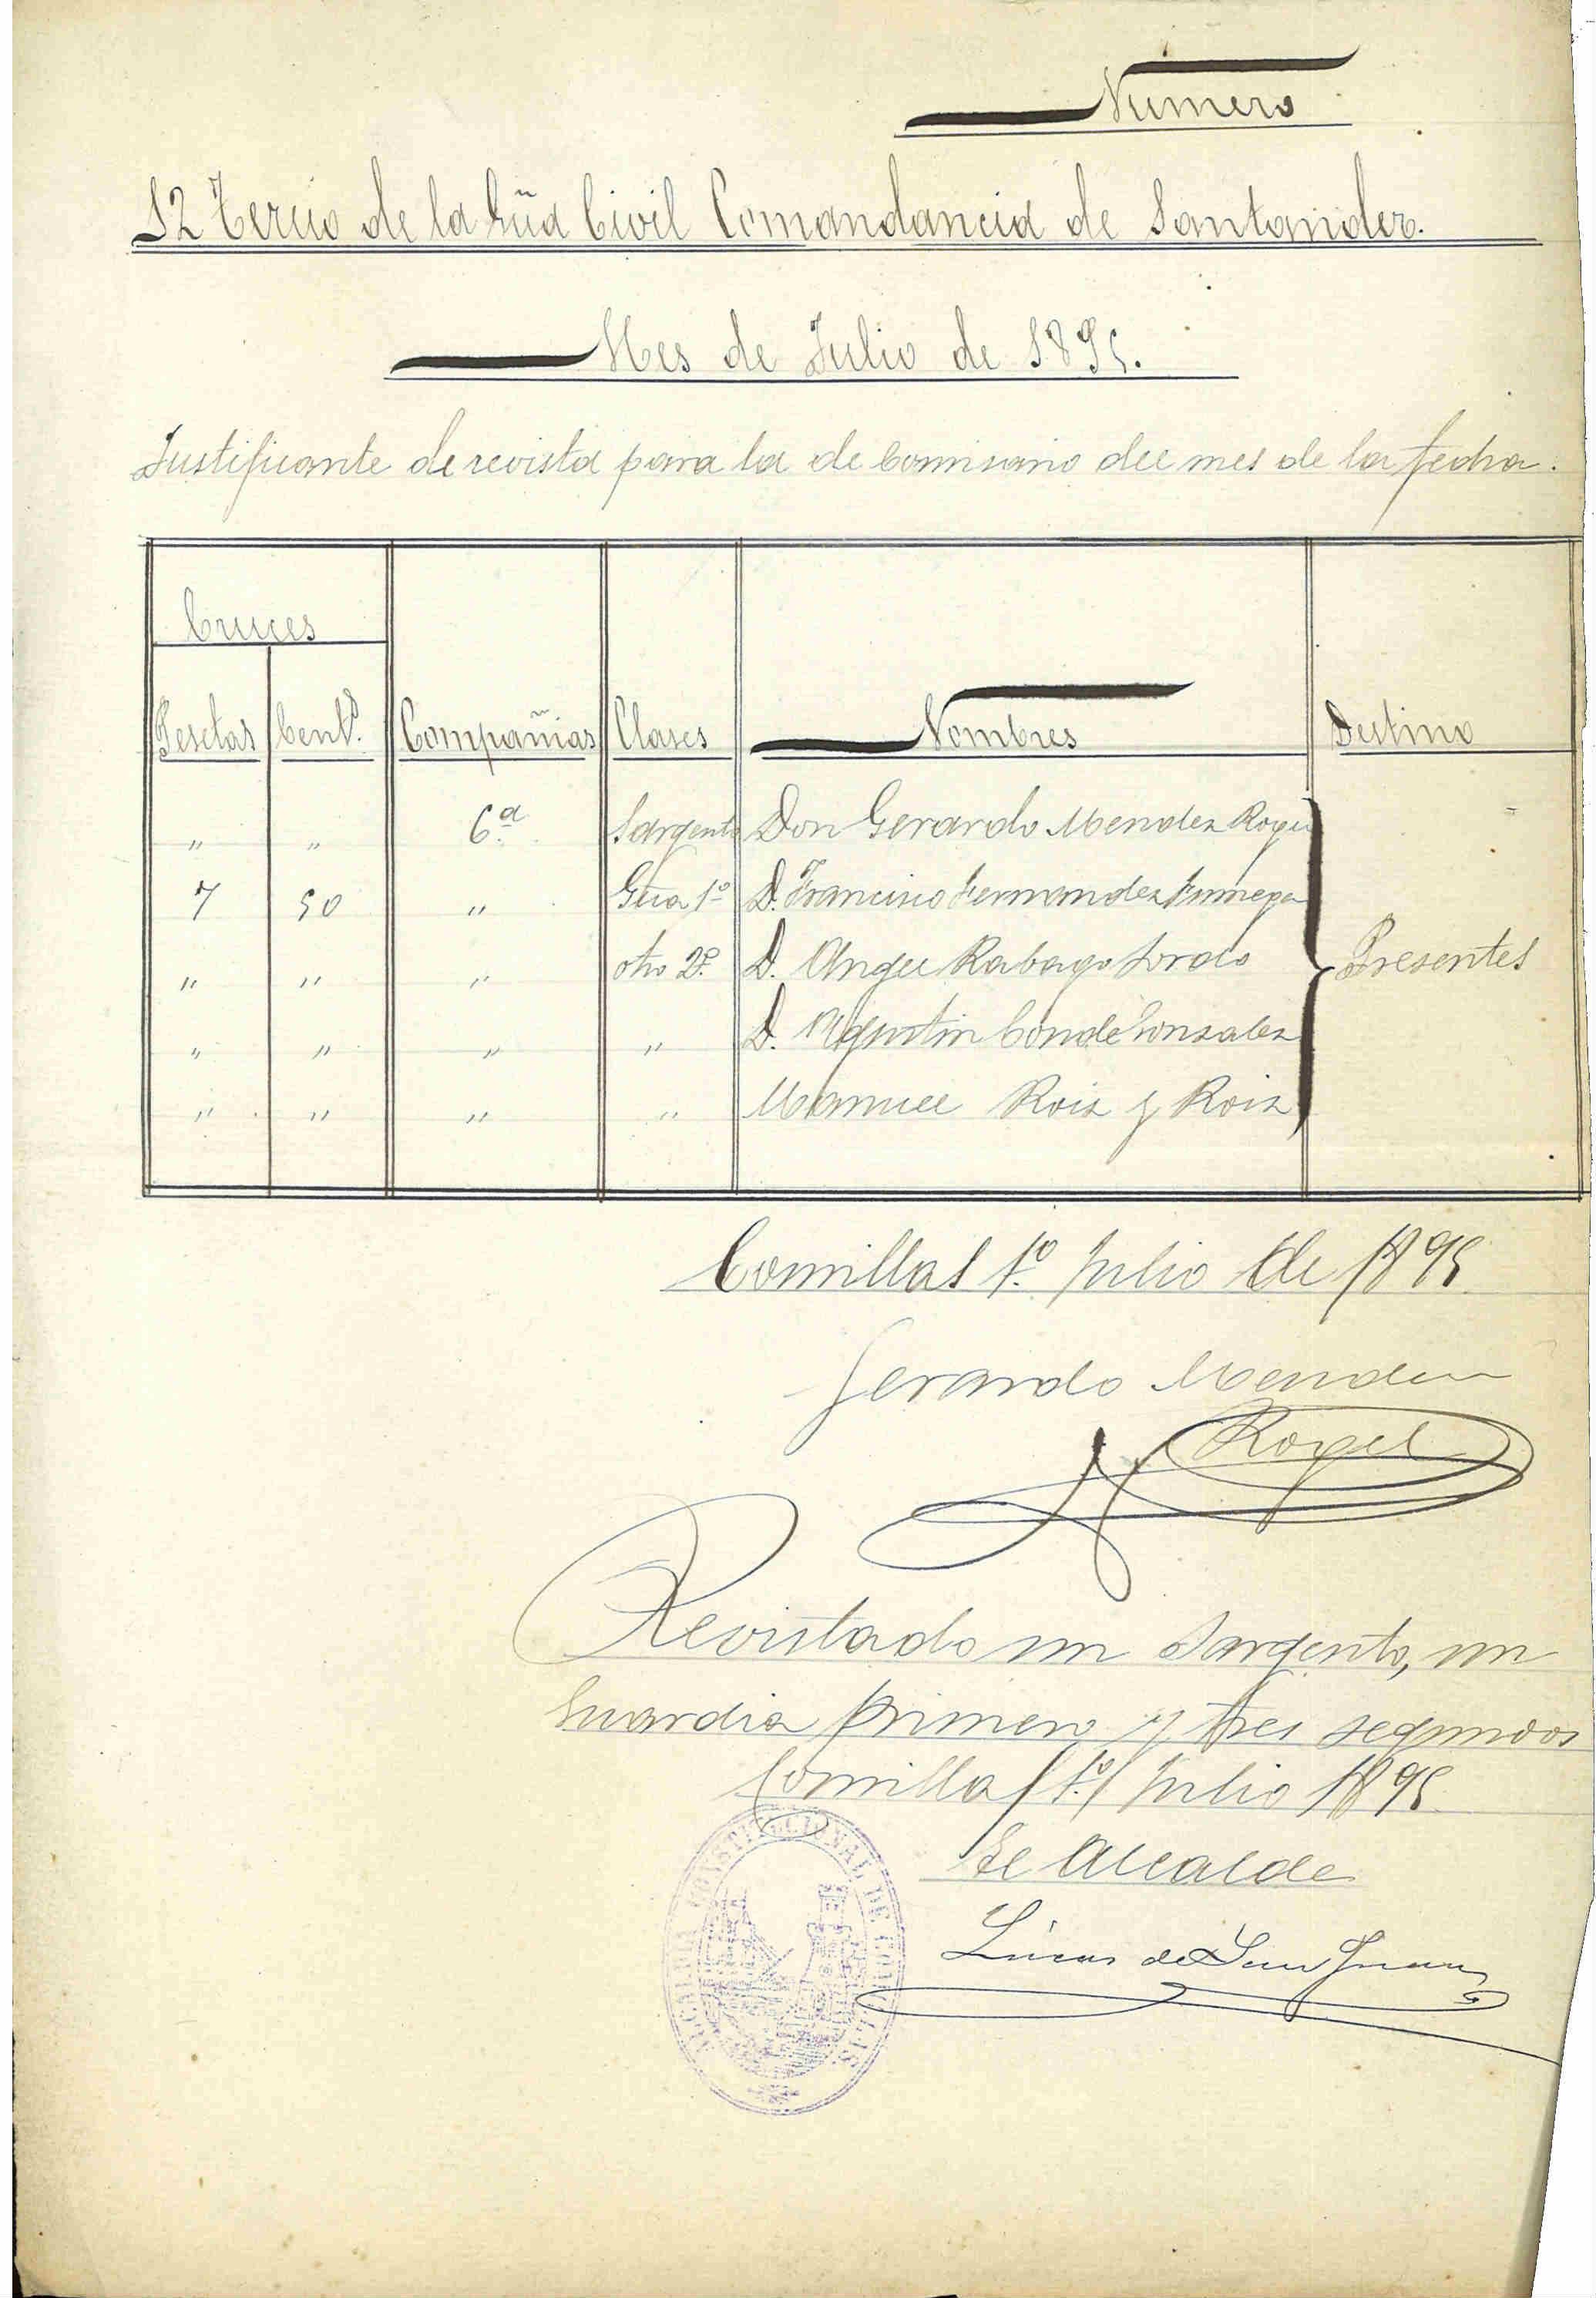 Número
12 Tercio de la Güa Civil Comandancia de Santander.
Mes de Julio de 1895.
Justificante de revista para la de Comisario del mes de la fecha.
Cruces
Pesetas Cents. Compañias Clases Nombres Destino
" " 6.ª Sargento Don Gerardo Mendez Rogel
7 50 " Güa 1º D. Francisco Fernandez
" " " otro 2º D. Angel Rabago Presentes
" " " " D. Agustin Conde Gonzalez
" " " " Manuel Roiz y Roiz
Comillas 1.º Julio de 1895
Gerardo Mendez
Rogel
Revistado un Sargento, un
Guardia primero y tres segundos
Comillas 1.º Julio 1895
El Alcalde
Lúcas de San Juan
ALCALDIA CONSTITUCIONAL DE COMILLAS